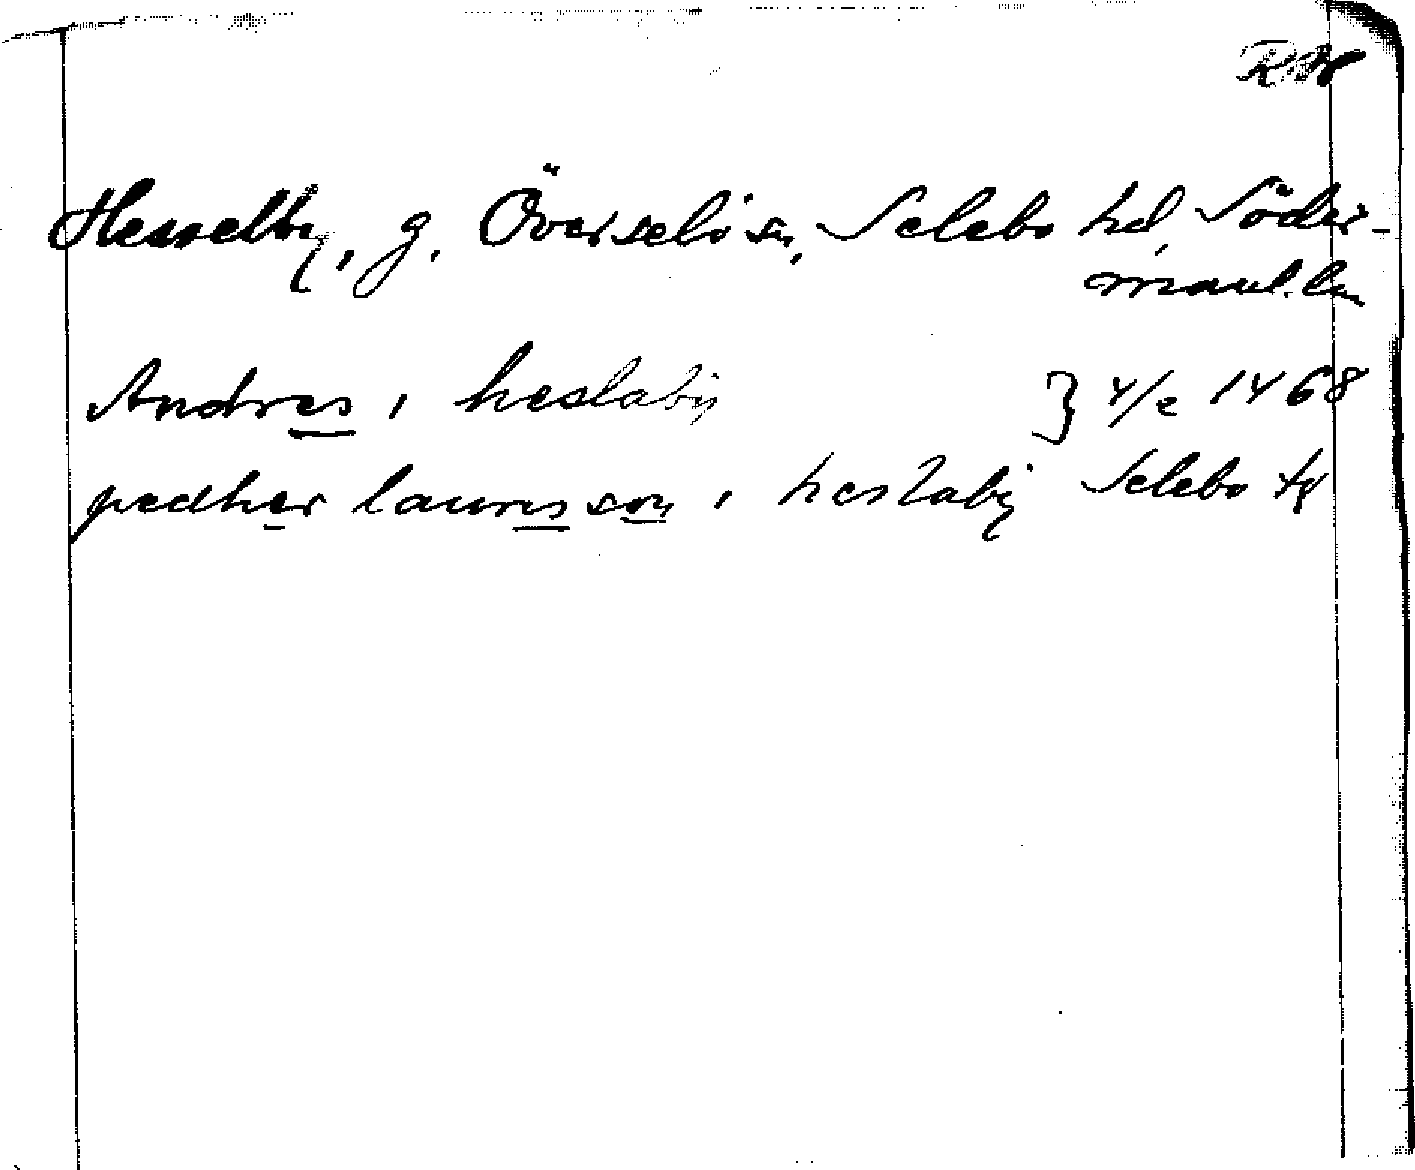 Hesselby, g. Överselö sn, Selebo hd, Söder-
manl. län
Andres i heslaby } 4/2 1468
pedher lauris son i heslaby Selebo tg